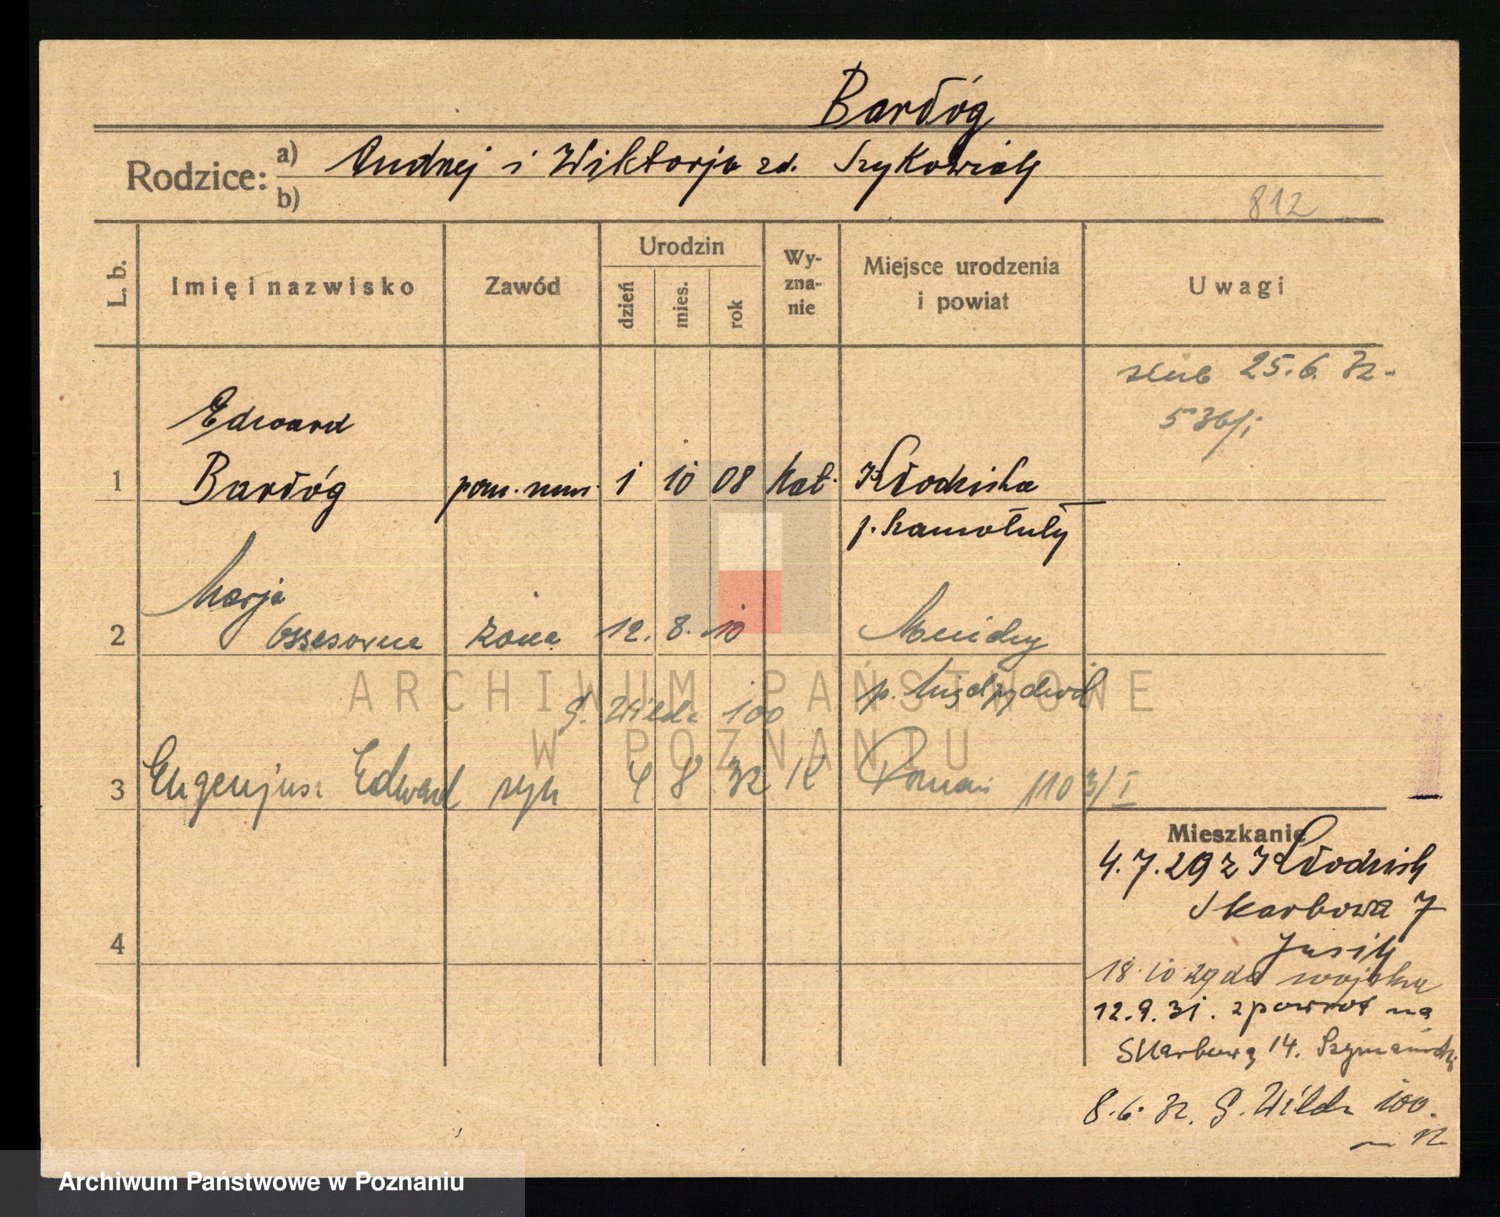 Bardóg
Rodzice:
a) Andrzej i Wiktorja zd.
b)
812
L. b.
Imię i nazwisko
Zawód
Urodzin
dzień
mies.
rok
Wy-
zna-
nie
Miejsce urodzenia
i powiat
Uwagi
ślub 25.6.32.
536/i
Edward
1 Bardóg pom. 1 10 08 kat.
p. Szamotuły
Marja
2 żona 12. 8. 10
p. Międzychód
G. Wilda 100
3 Eugenjusz Edward syn 4 8 32 K Poznań 1103/I
4
Mieszkanie
4.7.29 z
Skarbowa 7
18.10.29 do wojska
12.9.31. z powrot na
Skarbową 14.
8.6.32. G. Wilda 100.
ARCHIWUM PAŃSTWOWE
W POZNANIU
Archiwum Państwowe w Poznaniu